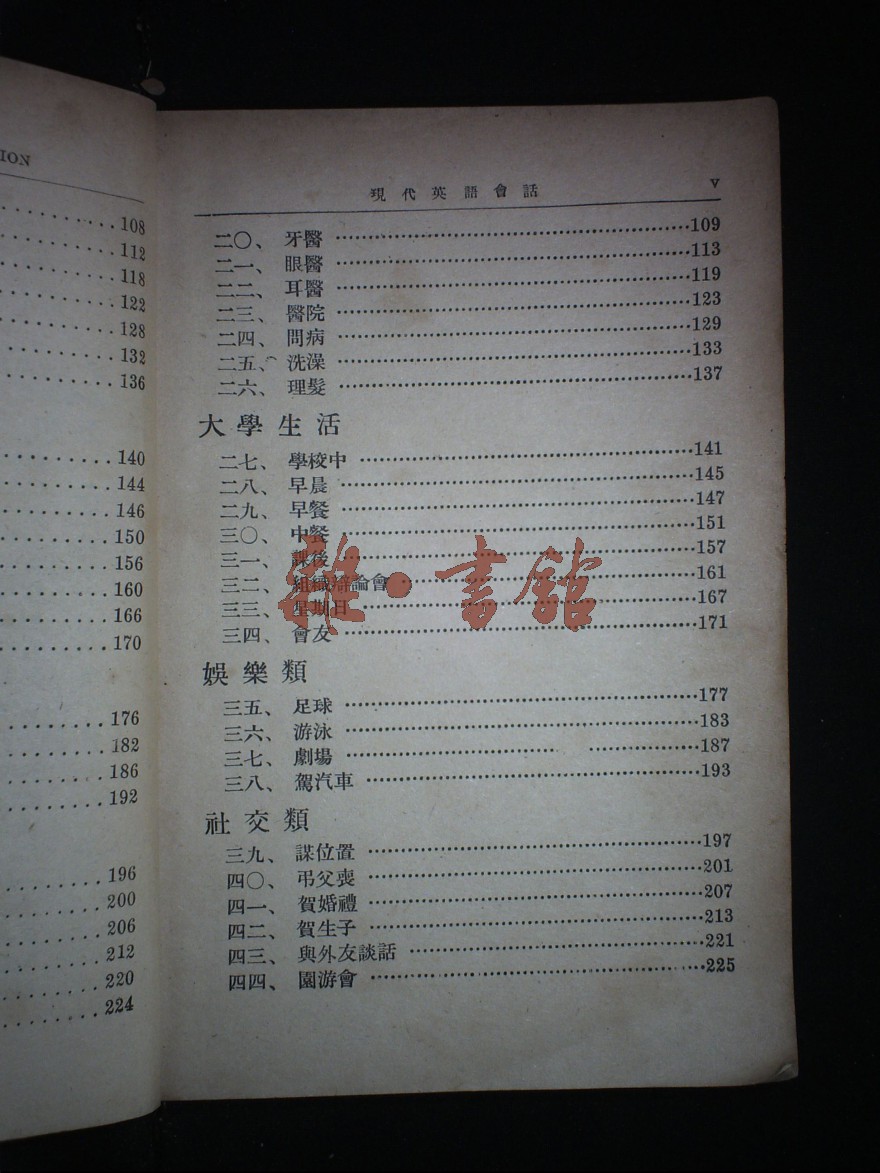 ION
108
112
118
122
128
132
136
140
144
146
150
156
160
166
170
176
182
186
192
196
200
206
212
220
224
現代英語會話 v
二〇、牙醫 109
二一、眼醫 113
二二、耳醫 119
二三、醫院 123
二四、問病 129
二五、洗澡 133
二六、理髮 137
大學生活
二七、學校中 141
二八、早晨 145
二九、早餐 147
三〇、中餐 151
三一、課後 157
三二、組織辯論會 161
三三、星期日 167
三四、會友 171
娛樂類
三五、足球 177
三六、游泳 183
三七、劇場 187
三八、駕汽車 193
社交類
三九、謀位置 197
四〇、弔父喪 201
四一、賀婚禮 207
四二、賀生子 213
四三、與外友談話 221
四四、園游會 225
雜·書館